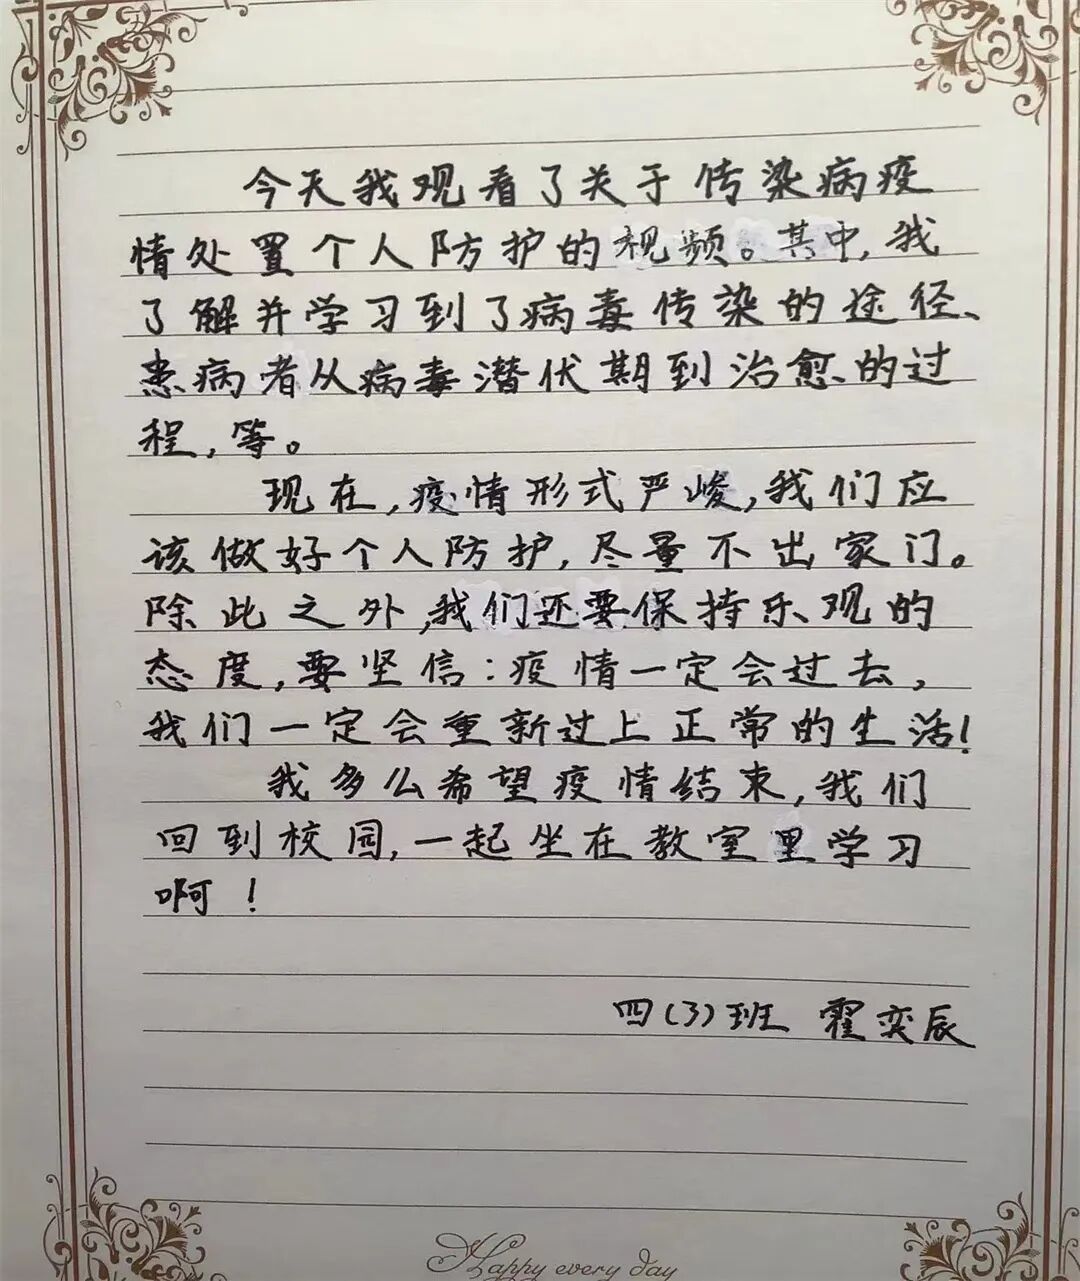 今天我观看了关于传染病疫
情处置个人防护的视频。其中,我
了解并学习到了病毒传染的途径、
患病者从病毒潜伏期到治愈的过
程,等。
现在,疫情形式严峻,我们应
该做好个人防护,尽量不出家门。
除此之外,我们还要保持乐观的
态度,要坚信:疫情一定会过去,
我们一定会重新过上正常的生活!
我多么希望疫情结束,我们
回到校园,一起坐在教室里学习
啊!
四(3)班 霍奕辰
Happy every day